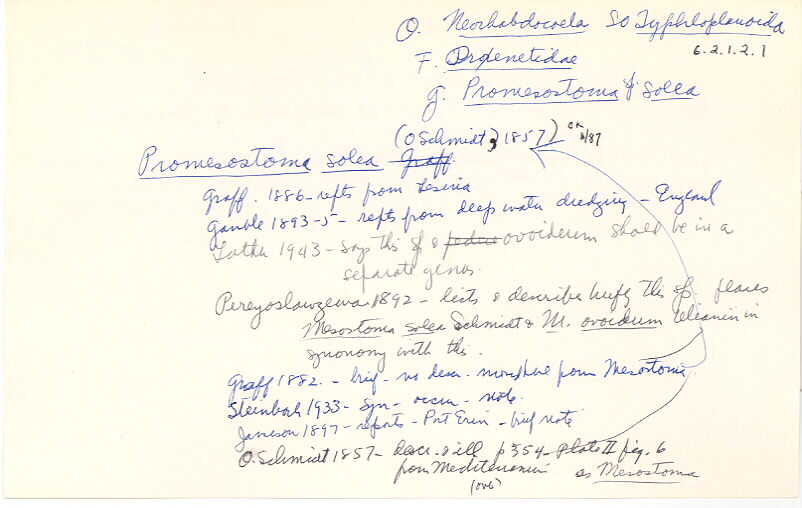 O. Neorhabdocoela SO Typhloplanoida
6.2.1.2.1
F.
g. Promesostoma solea
(O Schmidt, 1857) CK 1/87
Promesostoma solea Graff.
Graff. 1886 - repts from Lesina
Gamble 1893-5 - repts from deep water dredging - England
Luther 1943 - says this sp & ovoideum should be in a
separate genus.
Pereyaslawzewa 1892 - lists & describes briefly this sp. places
Mesostoma solea Schmidt & M. ovoideum Uljanin in
synonomy with this.
Graff 1882. - brief - no descr. - from Mesostoma
Steinbock 1933 - Syn - occur - note.
Jameson 1897 - reports - Port Erin - brief note
O. Schmidt 1857 - descr. & ill p 354 - Plate II fig. 6
from Mediterranean as Mesostoma